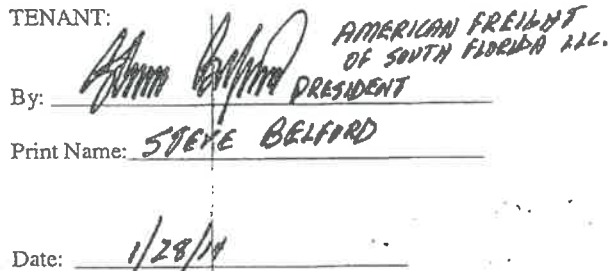 TENANT:
AMERICAN FREIGHT
OF SOUTH FLORIDA LLC.
By: PRESIDENT
Print Name: STEVE BELFORD
Date: 1/28/14